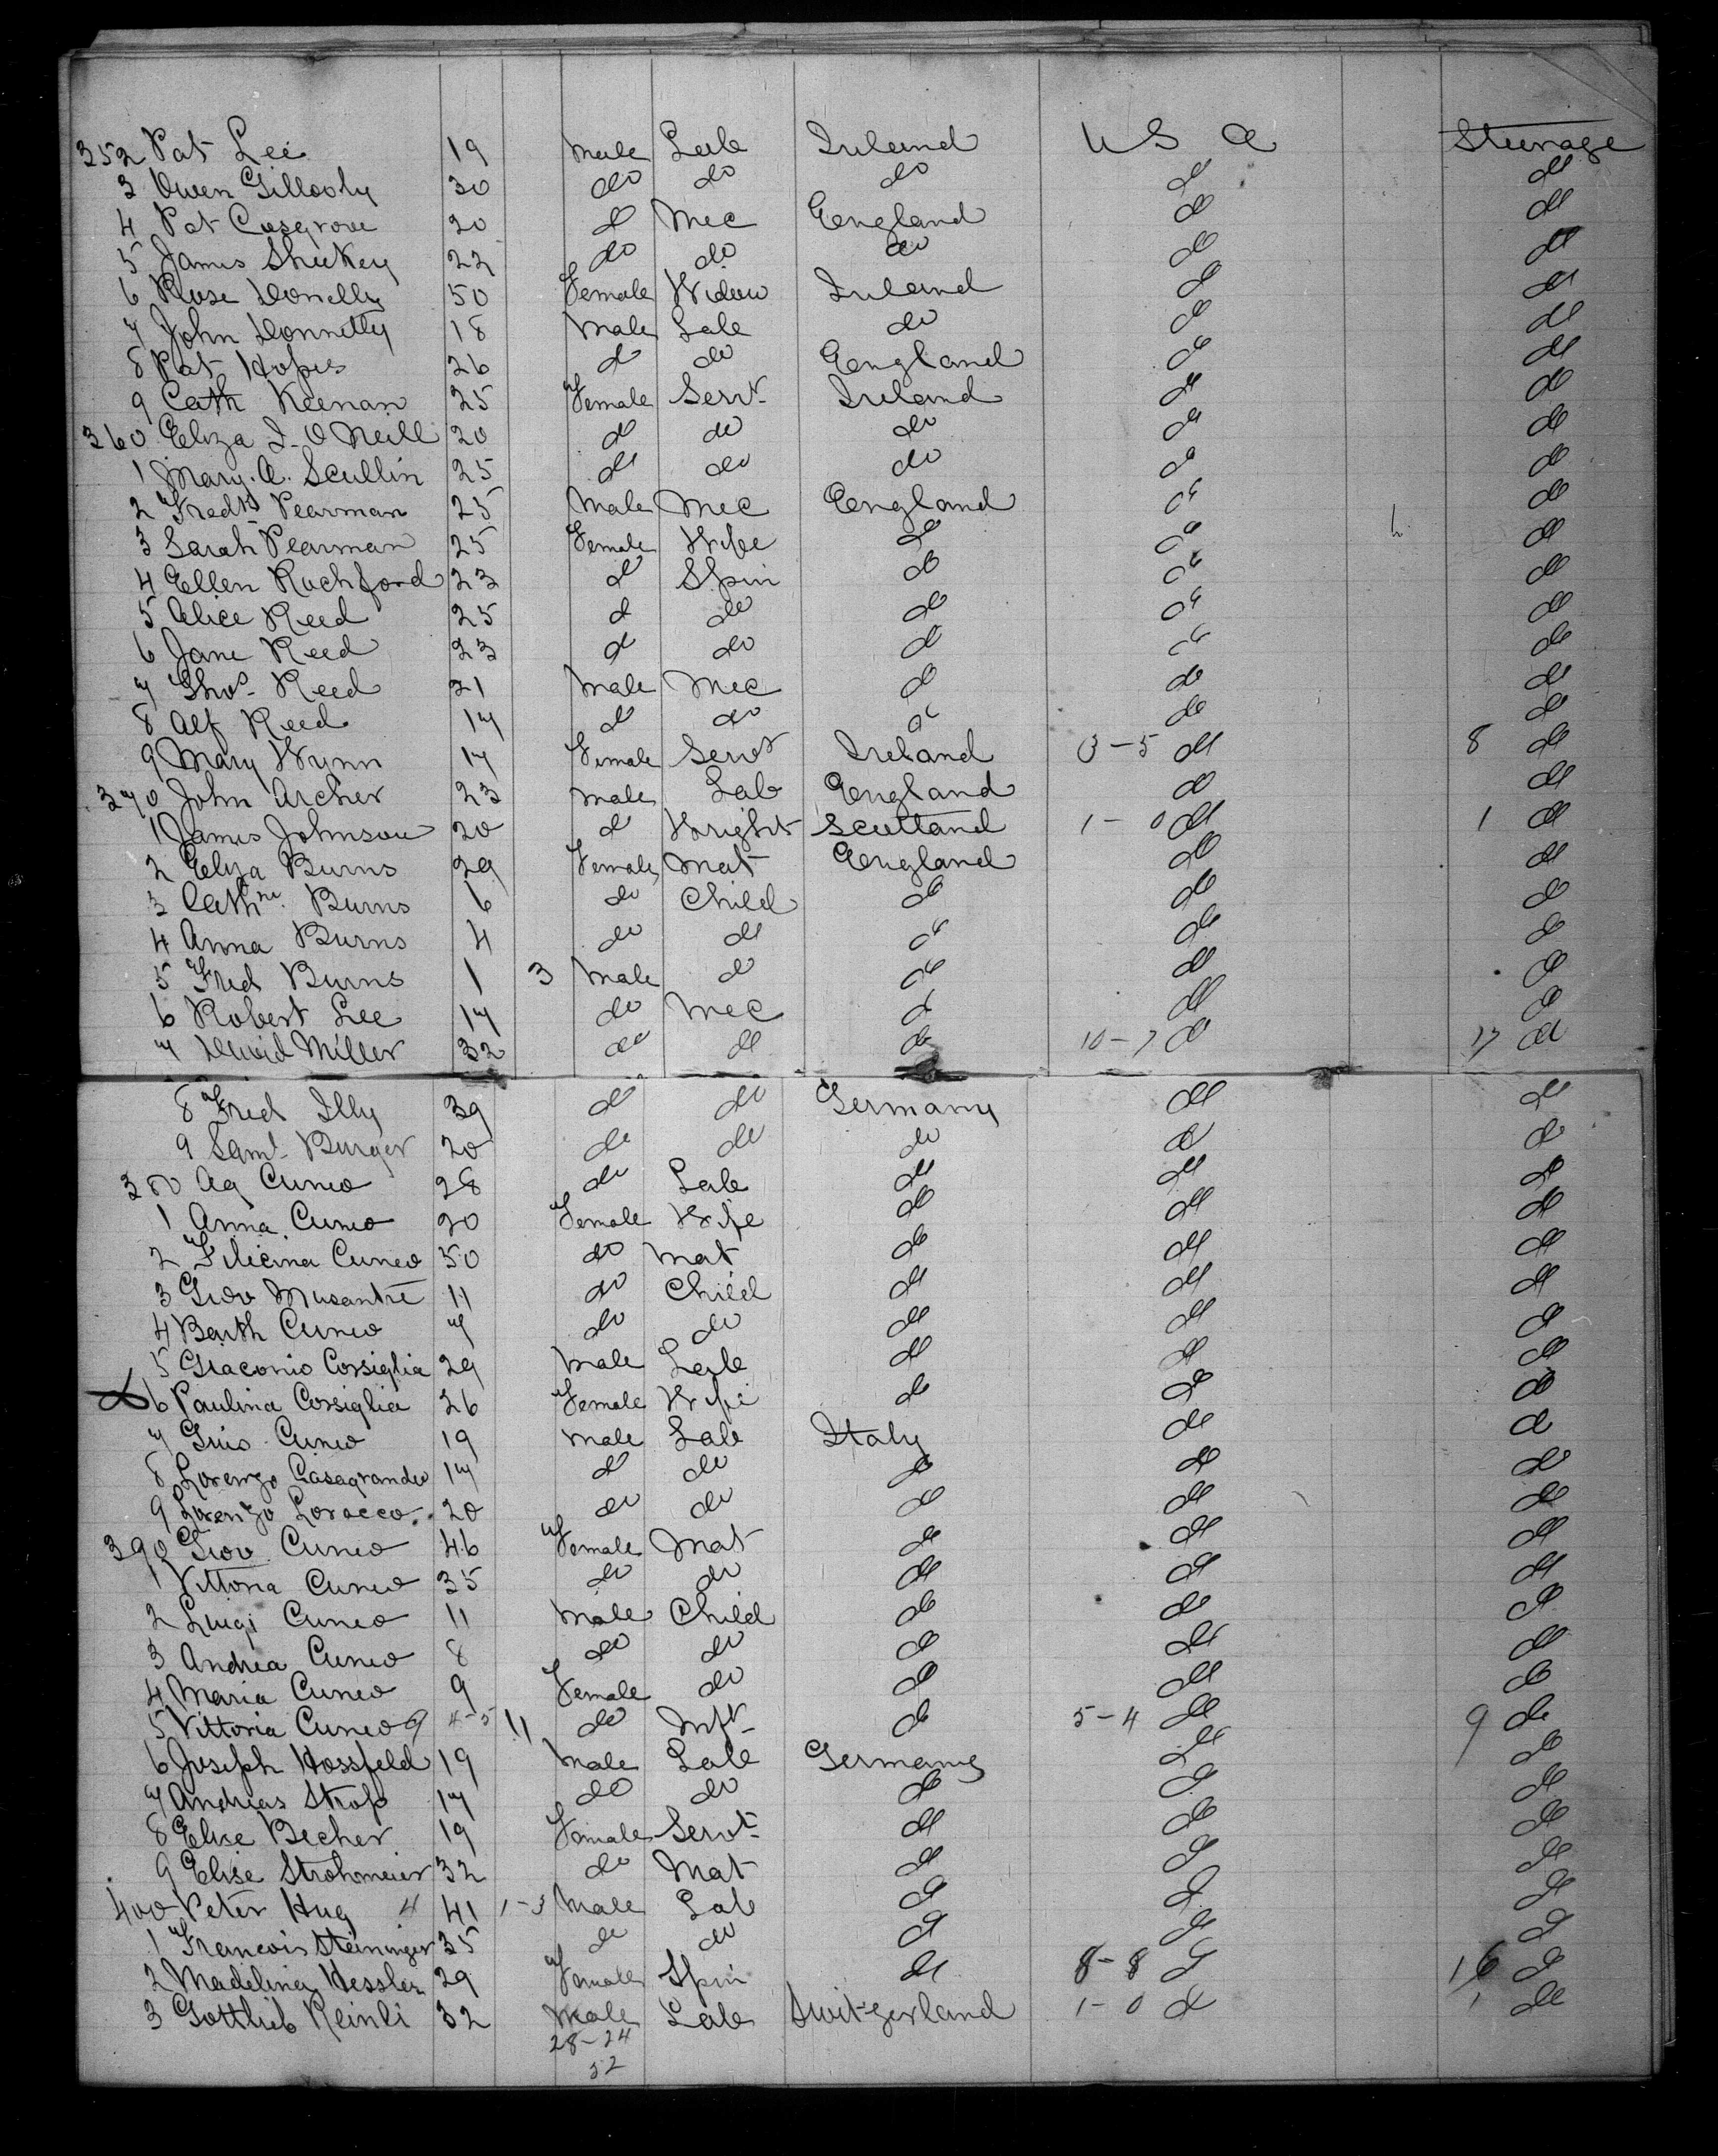 352 Pat Lee 19 Male Lab Ireland U S A Steerage
3 Owen Gillooly 30 do do do do do
4 Pat Cosgrove 20 do Mec England do do
5 James Sheekey 22 do do do do do
6 Rose Donelly 50 Female Widow Ireland do do
7 John Donnelly 18 Male Lab do do do
8 Pat Hopes 26 do do England do do
9 Cath Keenan 25 Female Servt Ireland do do
360 Eliza J. O Neill 20 do do do do do
1 Mary. A. Scullin 25 do do do do do
2 Fredk Pearman 25 Male Mec England do do
3 Sarah Pearman 25 Female Wife do do do
4 Ellen Rochford 23 do Spin do do do
5 Alice Reed 25 do do do do do
6 Jane Reed 23 do do do do do
7 Thos. Reed 21 Male Mec do do do
8 Alf Reed 17 do do do do do
9 Mary Wynn 17 Female Servt Ireland 3-5 do 8 do
370 John Archer 23 Male Lab England do do
1 James Johnson 20 do Wright Scotland 1-0 do 1 do
2 Eliza Burns 29 Female Mat England do do
3 Cathne. Burns 6 do Child do do do
4 Anna Burns 4 do do do do do
5 Fred Burns 1 3 Male do do do do
6 Robert Lee 17 do Mec do do do
7 David Miller 32 do do do 10-7 do 17 do
8 Fred Illy 39 do do Germany do do
9 Saml. Burger 20 do do do do do
380 Ag Cuneo 28 do Lab do do do
1 Anna Cuneo 20 Female Wife do do do
2 Filicina Cuneo 50 do Mat do do do
3 Giov Musante 11 do Child do do do
4 Barth Cuneo 7 do do do do do
5 Giacomo Corsiglia 29 Male Lab do do do
6 Paulina Corsiglia 26 Female Wife do do do
7 Cuneo 19 Male Lab Italy do do
8 Lorenzo Casagrande 17 do do do do do
9 Lorenzo Loracco 20 do do do do do
390 Giov Cuneo 46 Female Mat do do do
1 Vittoria Cuneo 35 do do do do do
2 Luigi Cuneo 11 Male Child do do do
3 Andrea Cuneo 8 do do do do do
4 Maria Cuneo 9 Female do do do do
5 Vittoria Cuneo 9 4-5 11 do Inft do 5-4 do 9 do
6 Joseph Hossfeld 19 Male Lab Germany do do
7 Andreas Strop 17 do do do do do
8 Elise Becher 19 Female Servt do do do
9 Elise Strohmeier 32 do Mat do do do
400 Peter Hug 4 41 1-3 Male Lab do do do
1 Francois Steininger 35 do do do do do
2 Madelina Hessler 29 Female Spin do 8-8 do 16 do
3 Gottlieb Reinli 32 Male Lab Switzerland 1-0 do 1 do
28-24
52